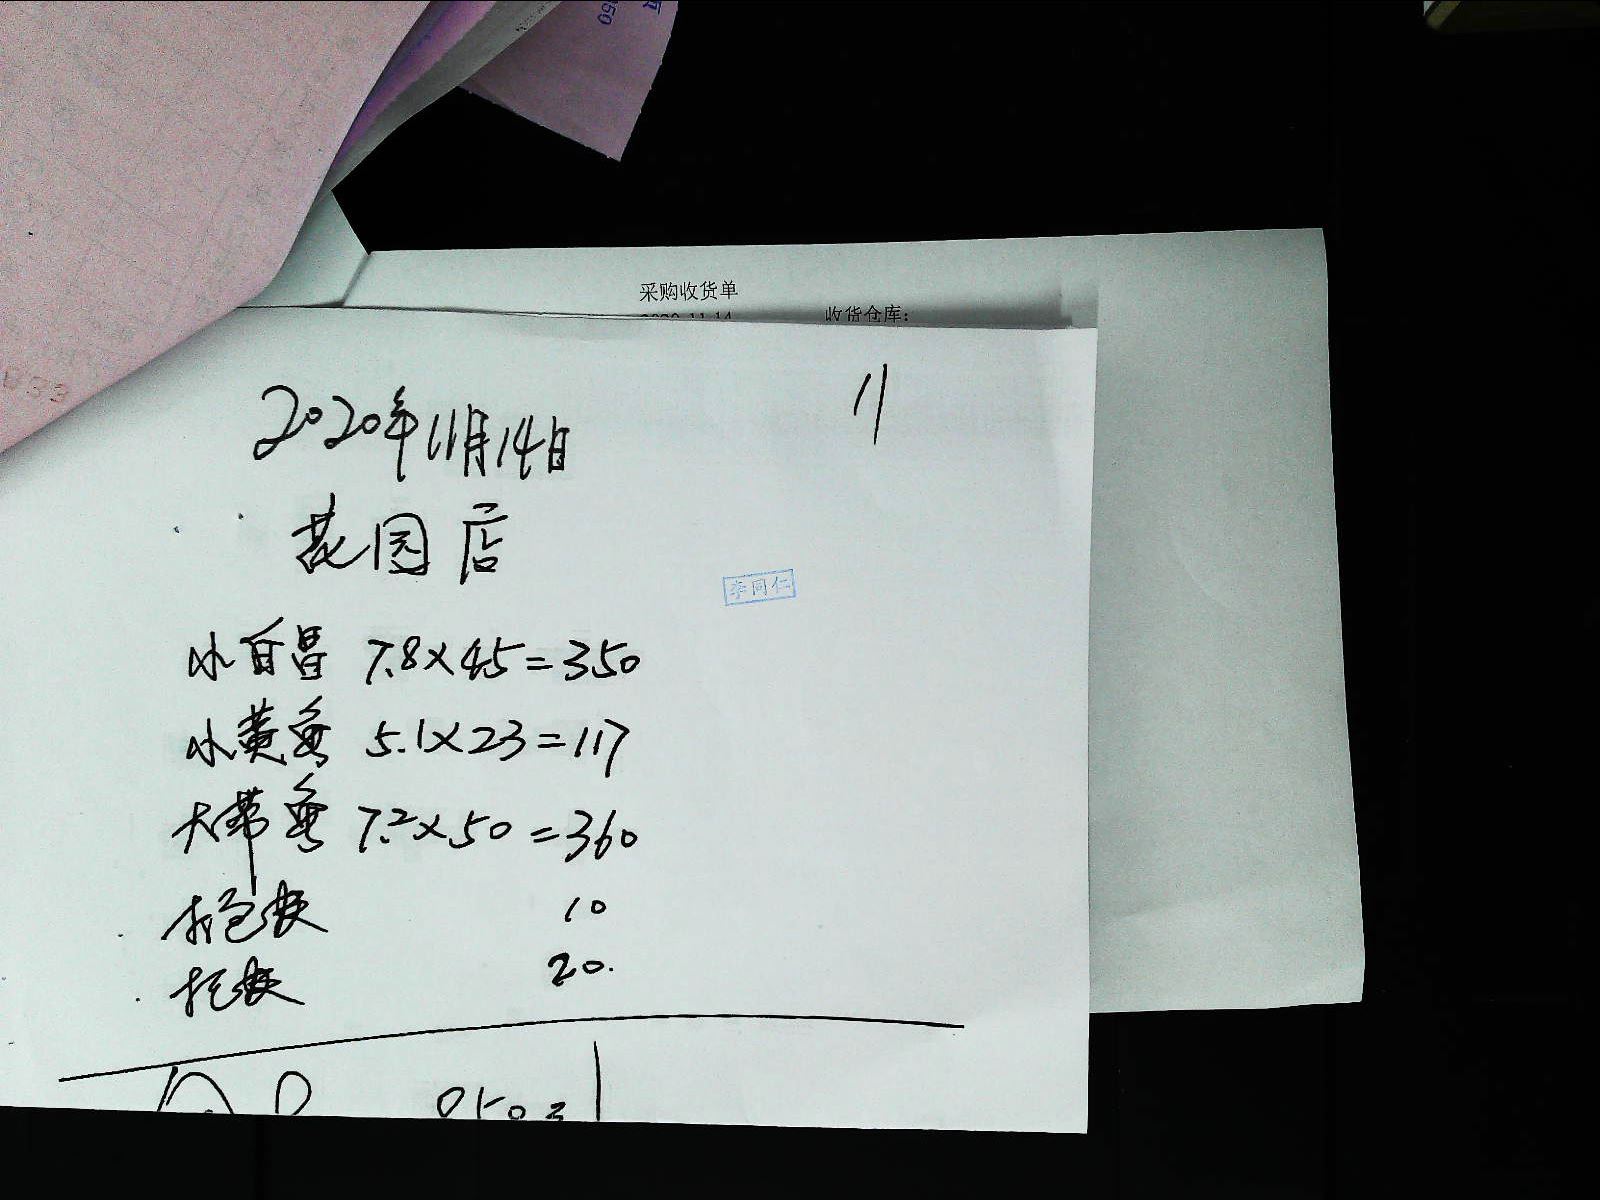 采购收货单
2020-11-14 收货仓库:
11
2020年11月14日
花园店
李同仁
小白昌 7.8×45=350
小黄鱼 5.1×23=117
大带鱼 7.2×50=360
10
20.